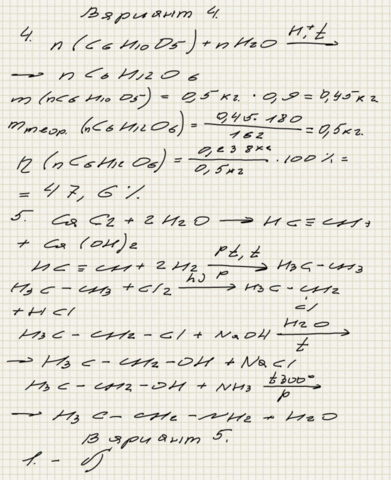 Вариант 4.
4. n(C6H10O5) + nH2O H⁺, t →
→ nC6H12O6
m(nC6H10O5) = 0,5кг. · 0,9 = 0,45кг
mтеор.(nC6H12O6) = 0,45·180/162 = 0,5кг.
η(nC6H12O6) = 0,238кг/0,5кг · 100% =
= 47,6%
5. CaC2 + 2H2O → HC≡CH +
+ Ca(OH)2
HC≡CH + 2H2 Pt, t/p → H3C-CH3
H3C-CH3 + Cl2 hν → H3C-CH2
Cl
+ HCl
H3C-CH2-Cl + NaOH H2O/t →
→ H3C-CH2-OH + NaCl
H3C-CH2-OH + NH3 t300°/p →
→ H3C-CH2-NH2 + H2O
Вариант 5.
1. - б)